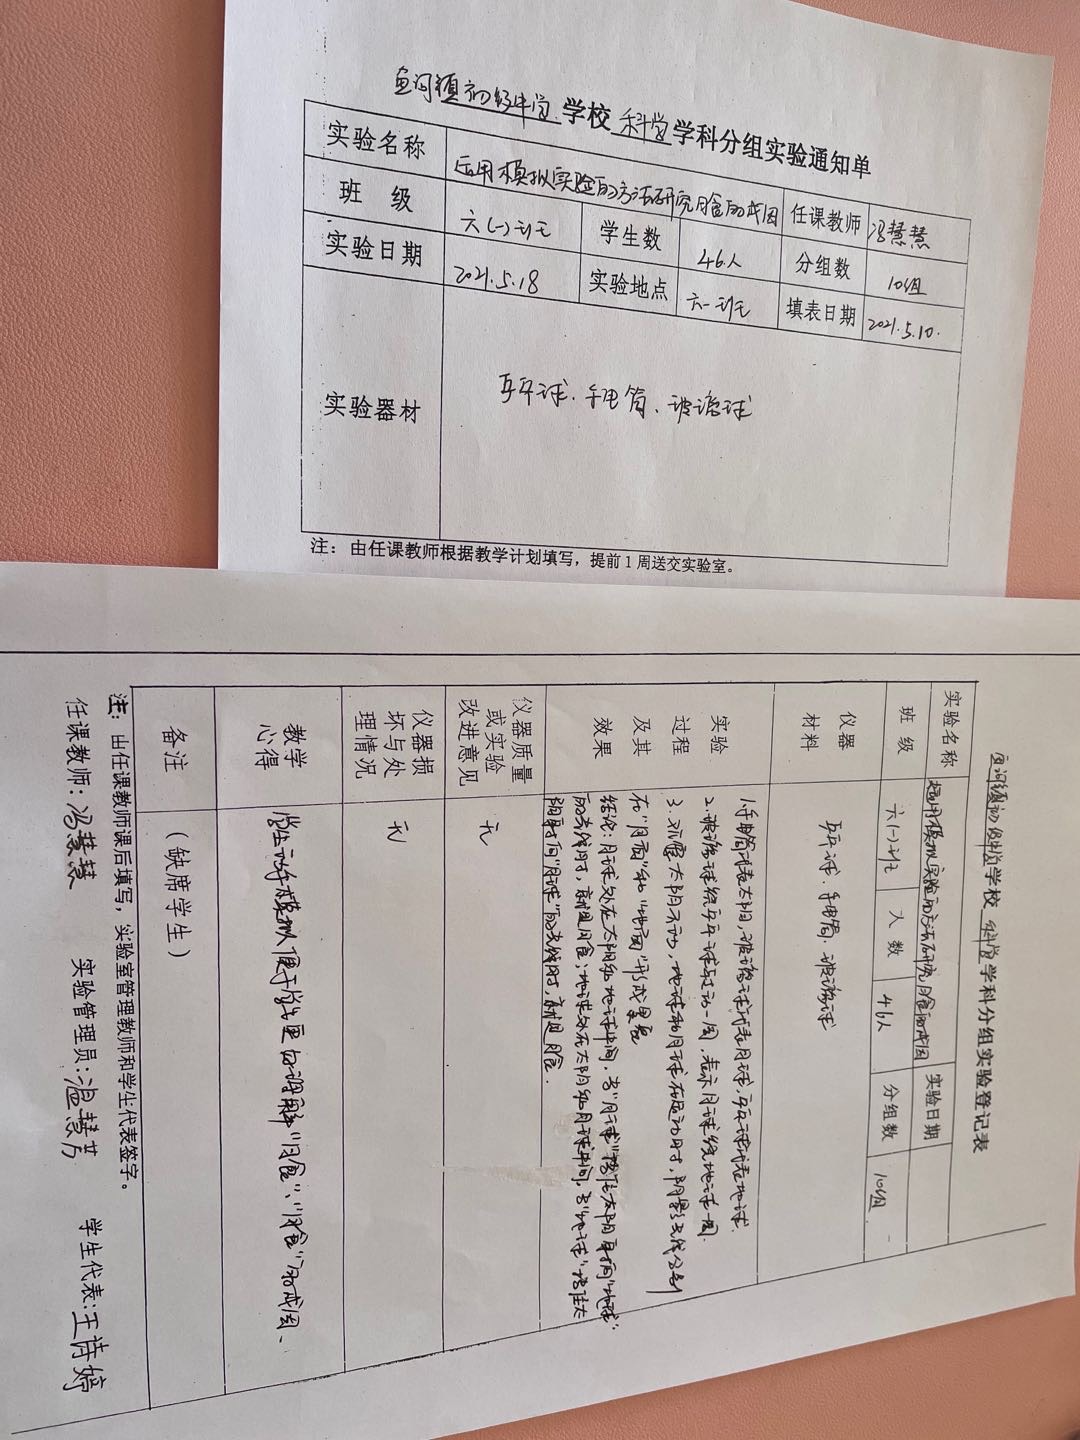 鱼河镇初级中学 学校 科学 学科分组实验通知单
实验名称 运用模拟实验的方法研究月食的成因 任课教师 冯慧慧
班 级 六(一)班 学生数 46人 分组数 10组
实验日期 2021.5.18 实验地点 六一班 填表日期 2021.5.10.
实验器材 乒乓球、手电筒、玻璃球
注：由任课教师根据教学计划填写，提前1周送交实验室。
鱼河镇初级中学 学校 科学 学科分组实验登记表
实验名称 运用模拟实验的方法研究月食的成因 实验日期
班 级 六(一)班 人 数 46人 分组数 10组
仪器
材料
乒乓球、手电筒、玻璃球
实验
过程
及其
效果
1.手电筒代表太阳,玻璃球代表月球,乒乓球代表地球.
2.玻璃球绕乒乓球转动一周,表示月球绕地球一周.
3.观察太阳不动,地球和月球在运动时,阴影会分别
在“月面”和“地面”形成黑影
结论:月球处在太阳和地球中间,当“月球”挡住太阳射向“地球”
的光线时,就是日食;地球处在太阳和月球中间,当“地球”挡住太
阳射向“月球”的光线时,就是月食.
仪器质量
或实验
改进意见
无
仪器损
坏与处
理情况
无
教学
心得
学生动手模拟便于学生更好理解“日食”、“月食”的成因、
备注
(缺席学生)
注：由任课教师课后填写，实验室管理教师和学生代表签字。
任课教师：冯慧慧 实验管理员：温慧芳 学生代表：王诗婷